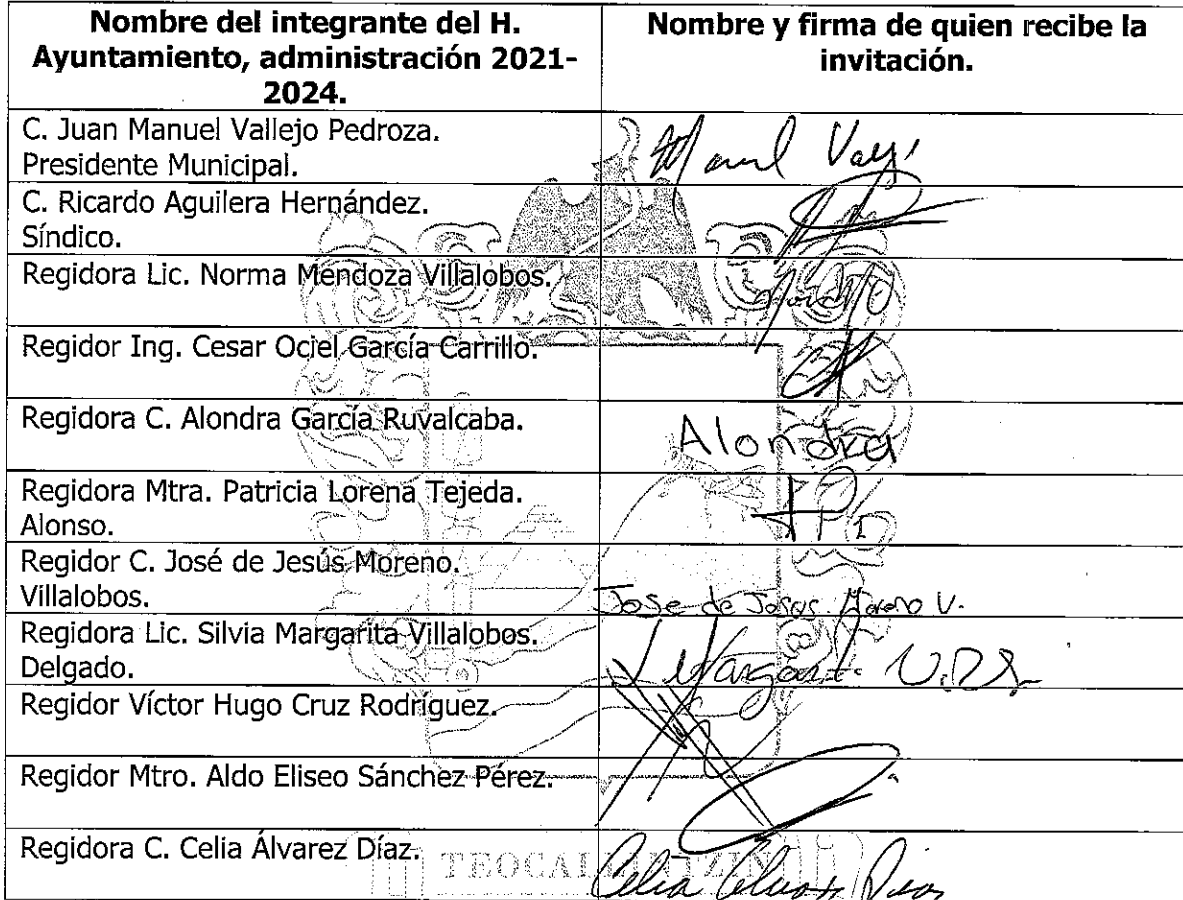 Nombre del integrante del H.
Ayuntamiento, administración 2021-
2024.
Nombre y firma de quien recibe la
invitación.
C. Juan Manuel Vallejo Pedroza.
Presidente Municipal.
Manuel
C. Ricardo Aguilera Hernández.
Síndico.
Regidora Lic. Norma Mendoza Villalobos.
Regidor Ing. Cesar Ociel García Carrillo.
Regidora C. Alondra García Ruvalcaba.
Alondra
Regidora Mtra. Patricia Lorena Tejeda.
Alonso.
Regidor C. José de Jesús Moreno.
Villalobos.
Jose de Jesus Moreno V.
Regidora Lic. Silvia Margarita Villalobos.
Delgado.
Regidor Víctor Hugo Cruz Rodríguez.
Regidor Mtro. Aldo Eliseo Sánchez Pérez.
Regidora C. Celia Álvarez Díaz.
Celia